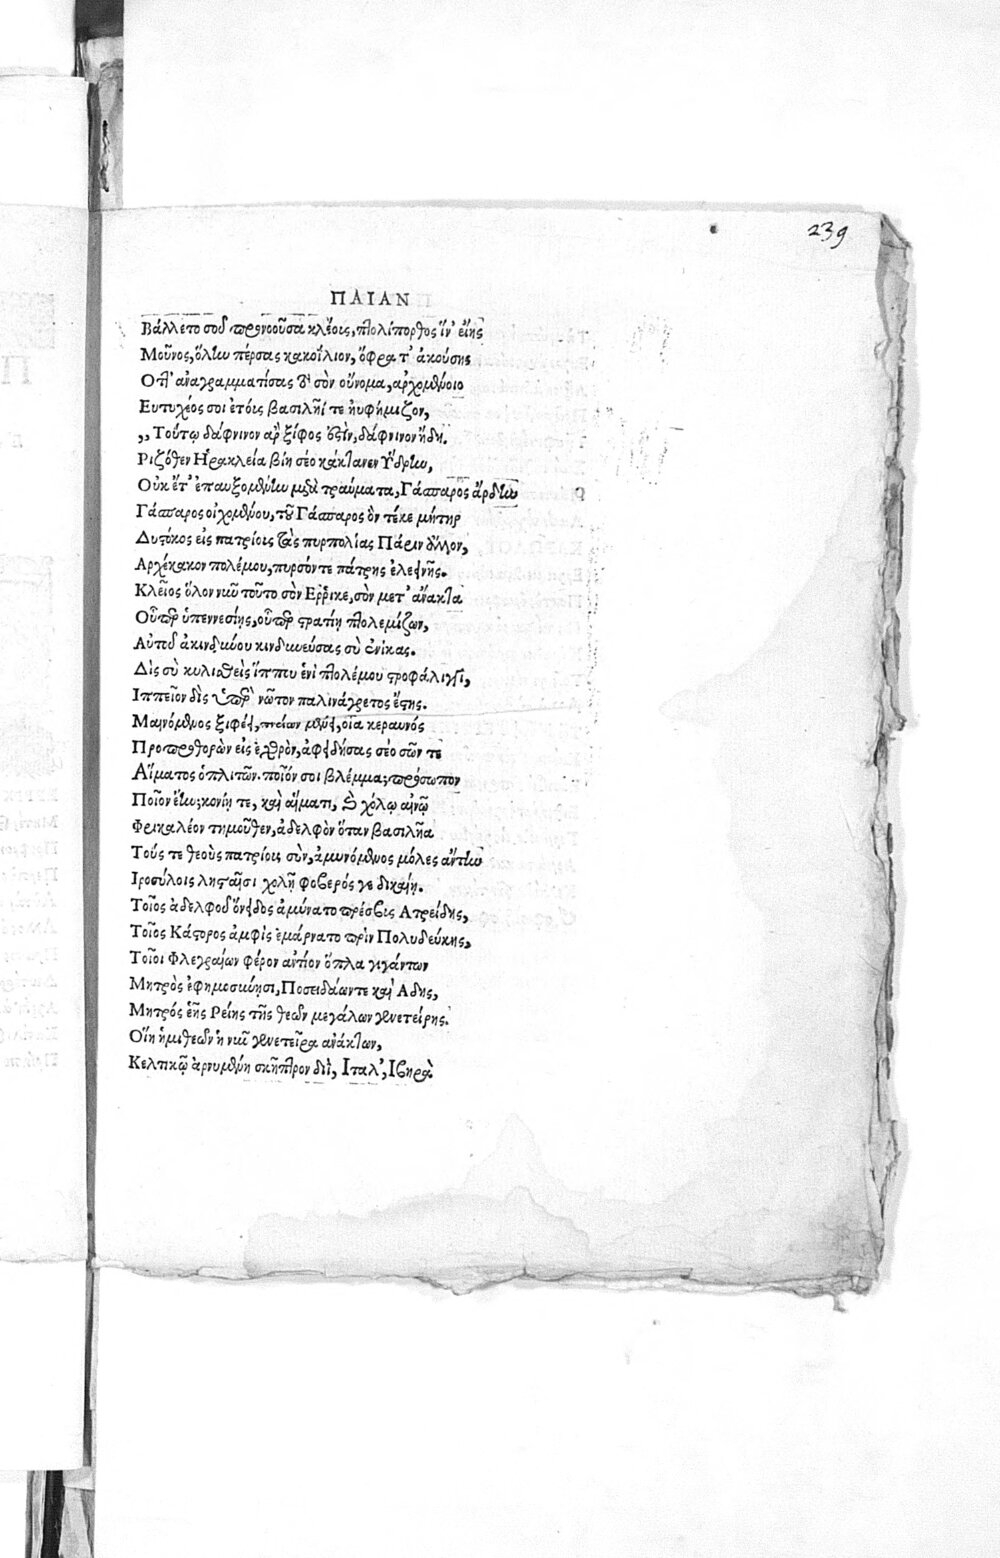 239
ΠΑΙΑΝ
Βάλλετο σοῦ προνοοῦσα κλέοις, πτολίπορθος ἵν' εἴης
Μοῦνος, ὅλην πέρσας κακοΐλιον, ὄφρα τ' ἀκούσης
Οτι' ἀναγραμματίσας δι σὸν οὔνομα, ἀρχομένοιο
Ευτυχέος σοι ἔτοις βασιλῆΐ τε ηὐφήμιζον,
,,Τούτῳ δάφνινον ἆρ ξίφος ὅστιν, δάφνινον ἤδη.
Ριζόθεν Ηρακλεία βίη σέο κάκτανεν Υδρην,
Οὐκ ἔτ' ἐπαυξομένην μετὰ τραύματα, Γάσπαρος ἄρδην
Γάσπαρος οἰχομένου, τοῦ Γάσπαρος ὃν τέκε μήτηρ
Δυστόκος εἰς πατρίοις τὰς πυρπολίας Πάριν ἄλλον,
Αρχέκακον πολέμου, πυρσόν τε πάτρης ἐλεεινῆς.
Κλεῖος ὅλον νῦν τοῦτο σὸν Ερρικε, σὸν μετ' ἄνακτα
Οὗπερ ὑπεννεσίης, οὗπερ στρατιῇ πτολεμίζων,
Αὐτοῦ ἀκινδύνου κινδυνεύσας σὺ ἐνίκας.
Δὶς σὺ κυλισθεὶς ἵππου ἐνὶ πτολέμου στροφάλιγγι,
Ιππεῖον δὶς ὑπὲρ νῶτον παλινάγρετος ἔστης.
Μαινόμενος ξιφέει, πνείων μένει, οἷα κεραυνός
Προπροθορὼν εἰς ἐχθρὸν, ἀφειδήσας σέο σῶν τε
Αἵματος ὁπλιτῶν. ποῖόν σοι βλέμμα; πρόσωπον
Ποῖον ἔην; κονίη τε, καὶ αἵματι, καὶ χόλῳ αἰνῷ
Φρικαλέον τημοῦθεν, ἀδελφὸν ὅταν βασιλῆα
Τούς τε θεοὺς πατρίοις σὺν, ἀμυνόμενος μόλες ἄντην
Ιροσύλοις λησταῖσι χολῇ φοβερός γε δικαίῃ.
Τοῖος ἀδελφοῦ ὄνειδος ἀμύνατο πρέσβις Ατρείδης,
Τοῖος Κάστορος ἀμφὶς ἐμάρνατο πρὶν Πολυδεύκης,
Τοῖοι Φλεγραίων φέρον ἀντίον ὅπλα γιγάντων
Μητρὸς ἐφημοσύνησι, Ποσειδάων τε καὶ Αδης,
Μητρός ἑῆς Ρείης τῆς θεῶν μεγάλων γενετείρης.
Οἵη ἡμιθεῶν ἡ νῦν γενετεῖρα ἀνάκτων,
Κελτικῷ ἀρνυμένη σκῆπτρον Διῒ, Ιταλ', Ιβηρὰ